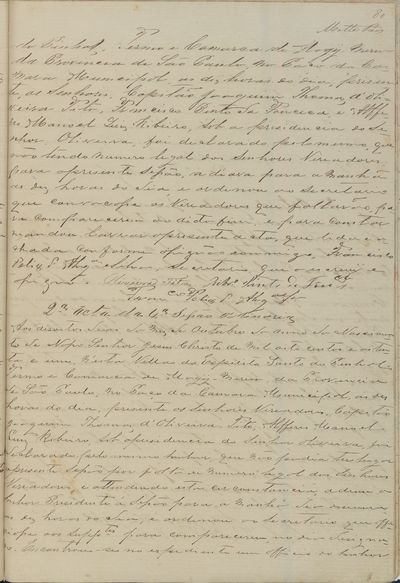 80
do Pinhal, Termo e Comarca de Mogy Mirim
da Provincia de São Paulo, no Paço da Ca-
mara Municipal as dez horas do dia, presen-
te os Senhores Capitão Joaquim Thomaz d'Oli-
veira Francisco Pinto da Fonceca e Alffe-
res Manoel Luiz Ribeiro, sob a presidencia do Se-
nhor Oliveira, foi declarado pelo mesmo, que
não tendo numero legal dos Senhores Vereadores
para a presente Sessão, adiava para a manhã
as dez horas do dia e ordenou ao Secretario
que convocasse os Vereadores que faltarão pa-
ra comparecerem no dito fim, e para constar
mandou lavrar a presente acta, que lida e a-
chada conforme assignão commigo, Francisco
Secretario que o escrevi e
assignei
2ª Acta da 4ª Sessão Ordinaria
Aos dias do mez de Outubro do Anno do Nascimen-
to de Nosso Senhor Jesus Christo de mil oito centos e oiten-
ta e um, nesta Villa do Espirito Santo do Pinhal
Termo e Comarca de Mogy-Mirim, da Provincia
de São Paulo, no Paço da Camara Municipal as dez
horas do dia, presente os Senhores Vereadores, Capitão
Joaquim Thomaz d'Oliveira Alferes Manoel
Luiz Ribeiro, sob a presidencia do Senhor Oliveira, foi
declarado pelo mesmo Senhor, que não podia ter lugar
a presente Sessão por falta de numero legal dos Senhores
Vereadores, e attendendo esta circonstancia, adiou o
Senhor Presidente a Sessão para a manhã
as dez horas do dia, e ordenou ao Secretario que offi-
ciasse aos Suppᵗᵉˢ para comparecerem no dia designa-
do. Encontrou-se no expediente um officio do Senhor